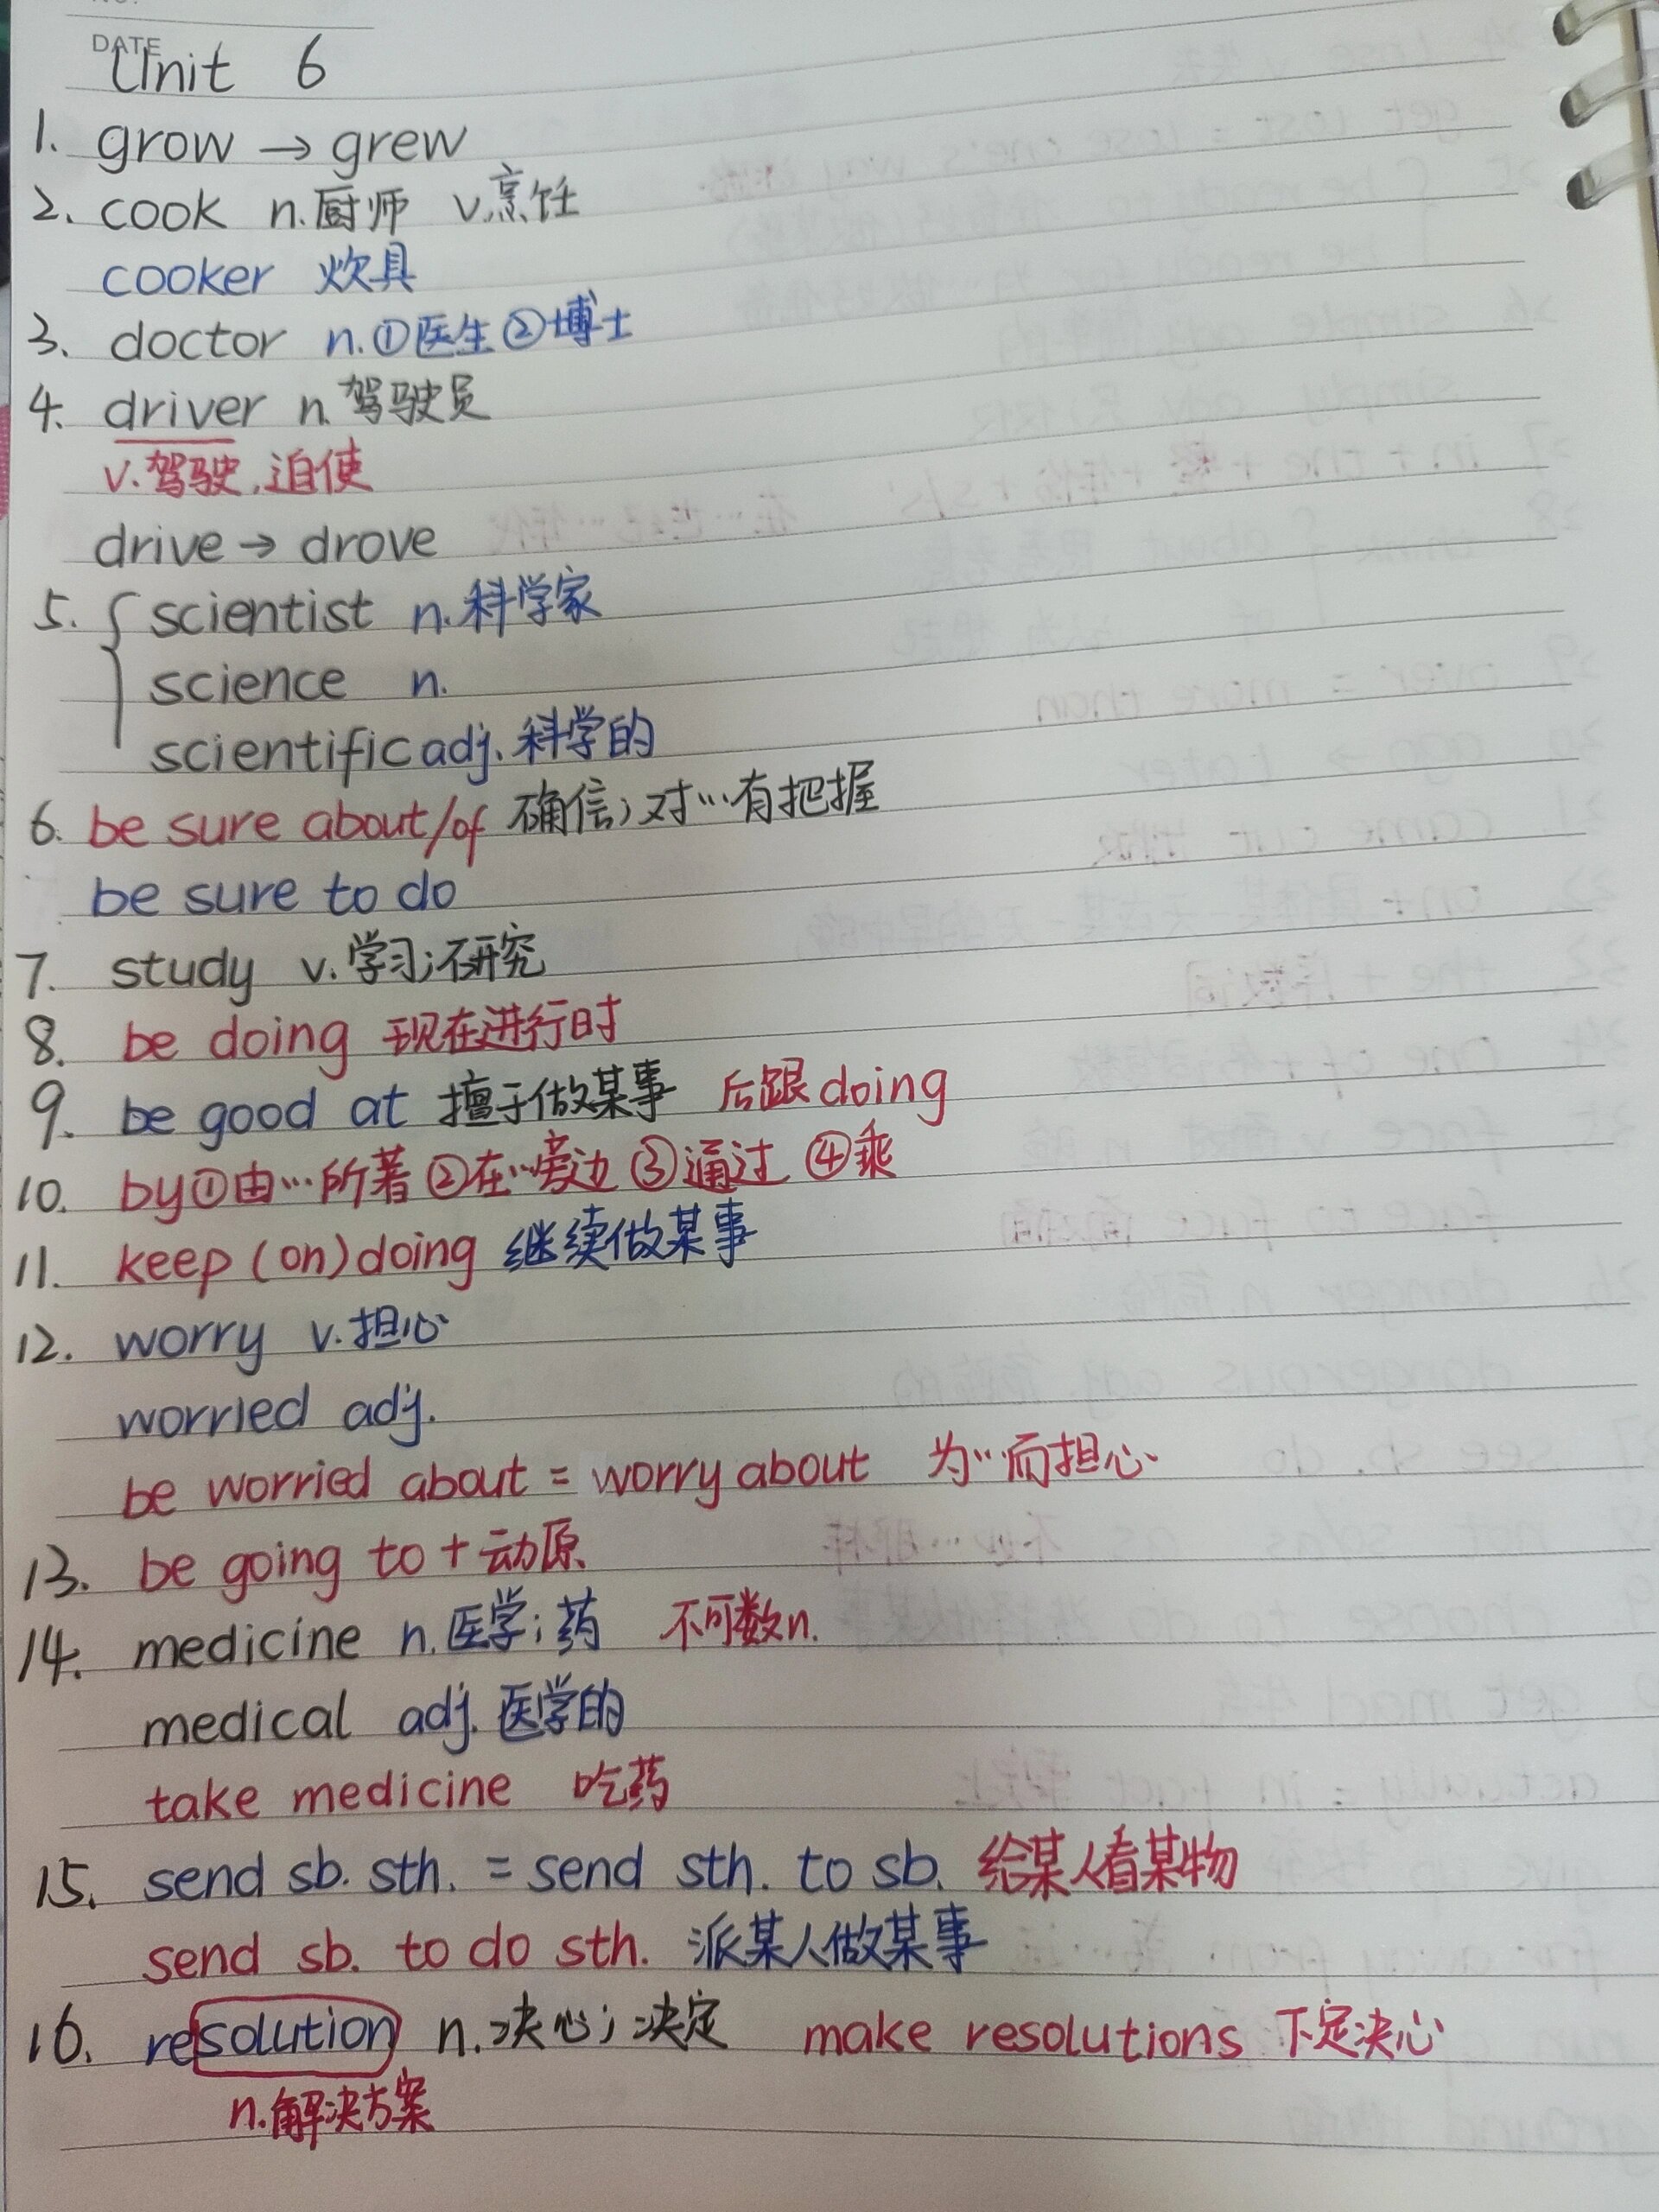 DATE
Unit 6
1. grow → grew
2. cook n.厨师 v.烹饪
cooker 炊具
3. doctor n.①医生②博士
4. driver n.驾驶员
v.驾驶,迫使
drive → drove
5. { scientist n.科学家
science n.
scientific adj.科学的
6. be sure about/of 确信;对…有把握
be sure to do
7. study v.学习;研究
8. be doing 现在进行时
9. be good at 擅于做某事 后跟doing
10. by①由…所著②在…旁边③通过 ④乘
11. keep (on) doing 继续做某事
12. worry v.担心
worried adj.
be worried about = worry about 为…而担心
13. be going to + 动原
14. medicine n.医学;药 不可数n.
medical adj.医学的
take medicine 吃药
15. send sb. sth. = send sth. to sb. 给某人看某物
send sb. to do sth. 派某人做某事
16. resolution n.决心;决定 make resolutions 下定决心
n.解决方案